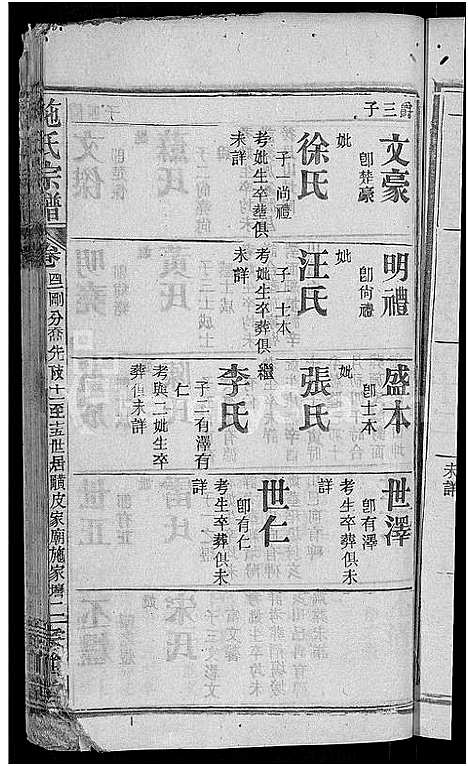 爵三子
文豪
即楚豪
妣
徐氏
子一尚禮
考妣生卒塟俱
未詳
明禮
即尙禮
妣
汪氏
子一士本
考妣生卒葬俱
未詳
盛本
即士本
妣
張氏
繼
李氏
子二有澤有
仁
考與二妣生卒
葬俱未詳
世澤
即有澤
考生卒葬俱未
詳
世仁
即有仁
考生卒葬俱未
詳
施氏宗譜
卷
分喬先
十一至
世居
皮家廟施家
二
未詳